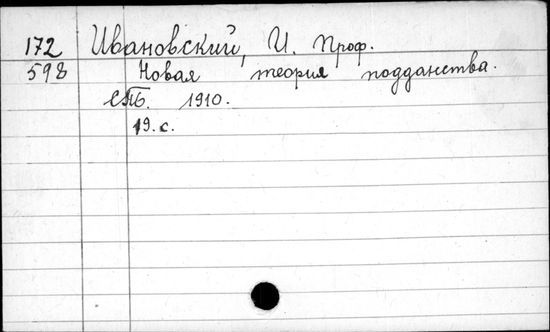 172 Ивановский, И. Проф.
598 Новая теория подданства.
СПБ. 1910.
19.с.